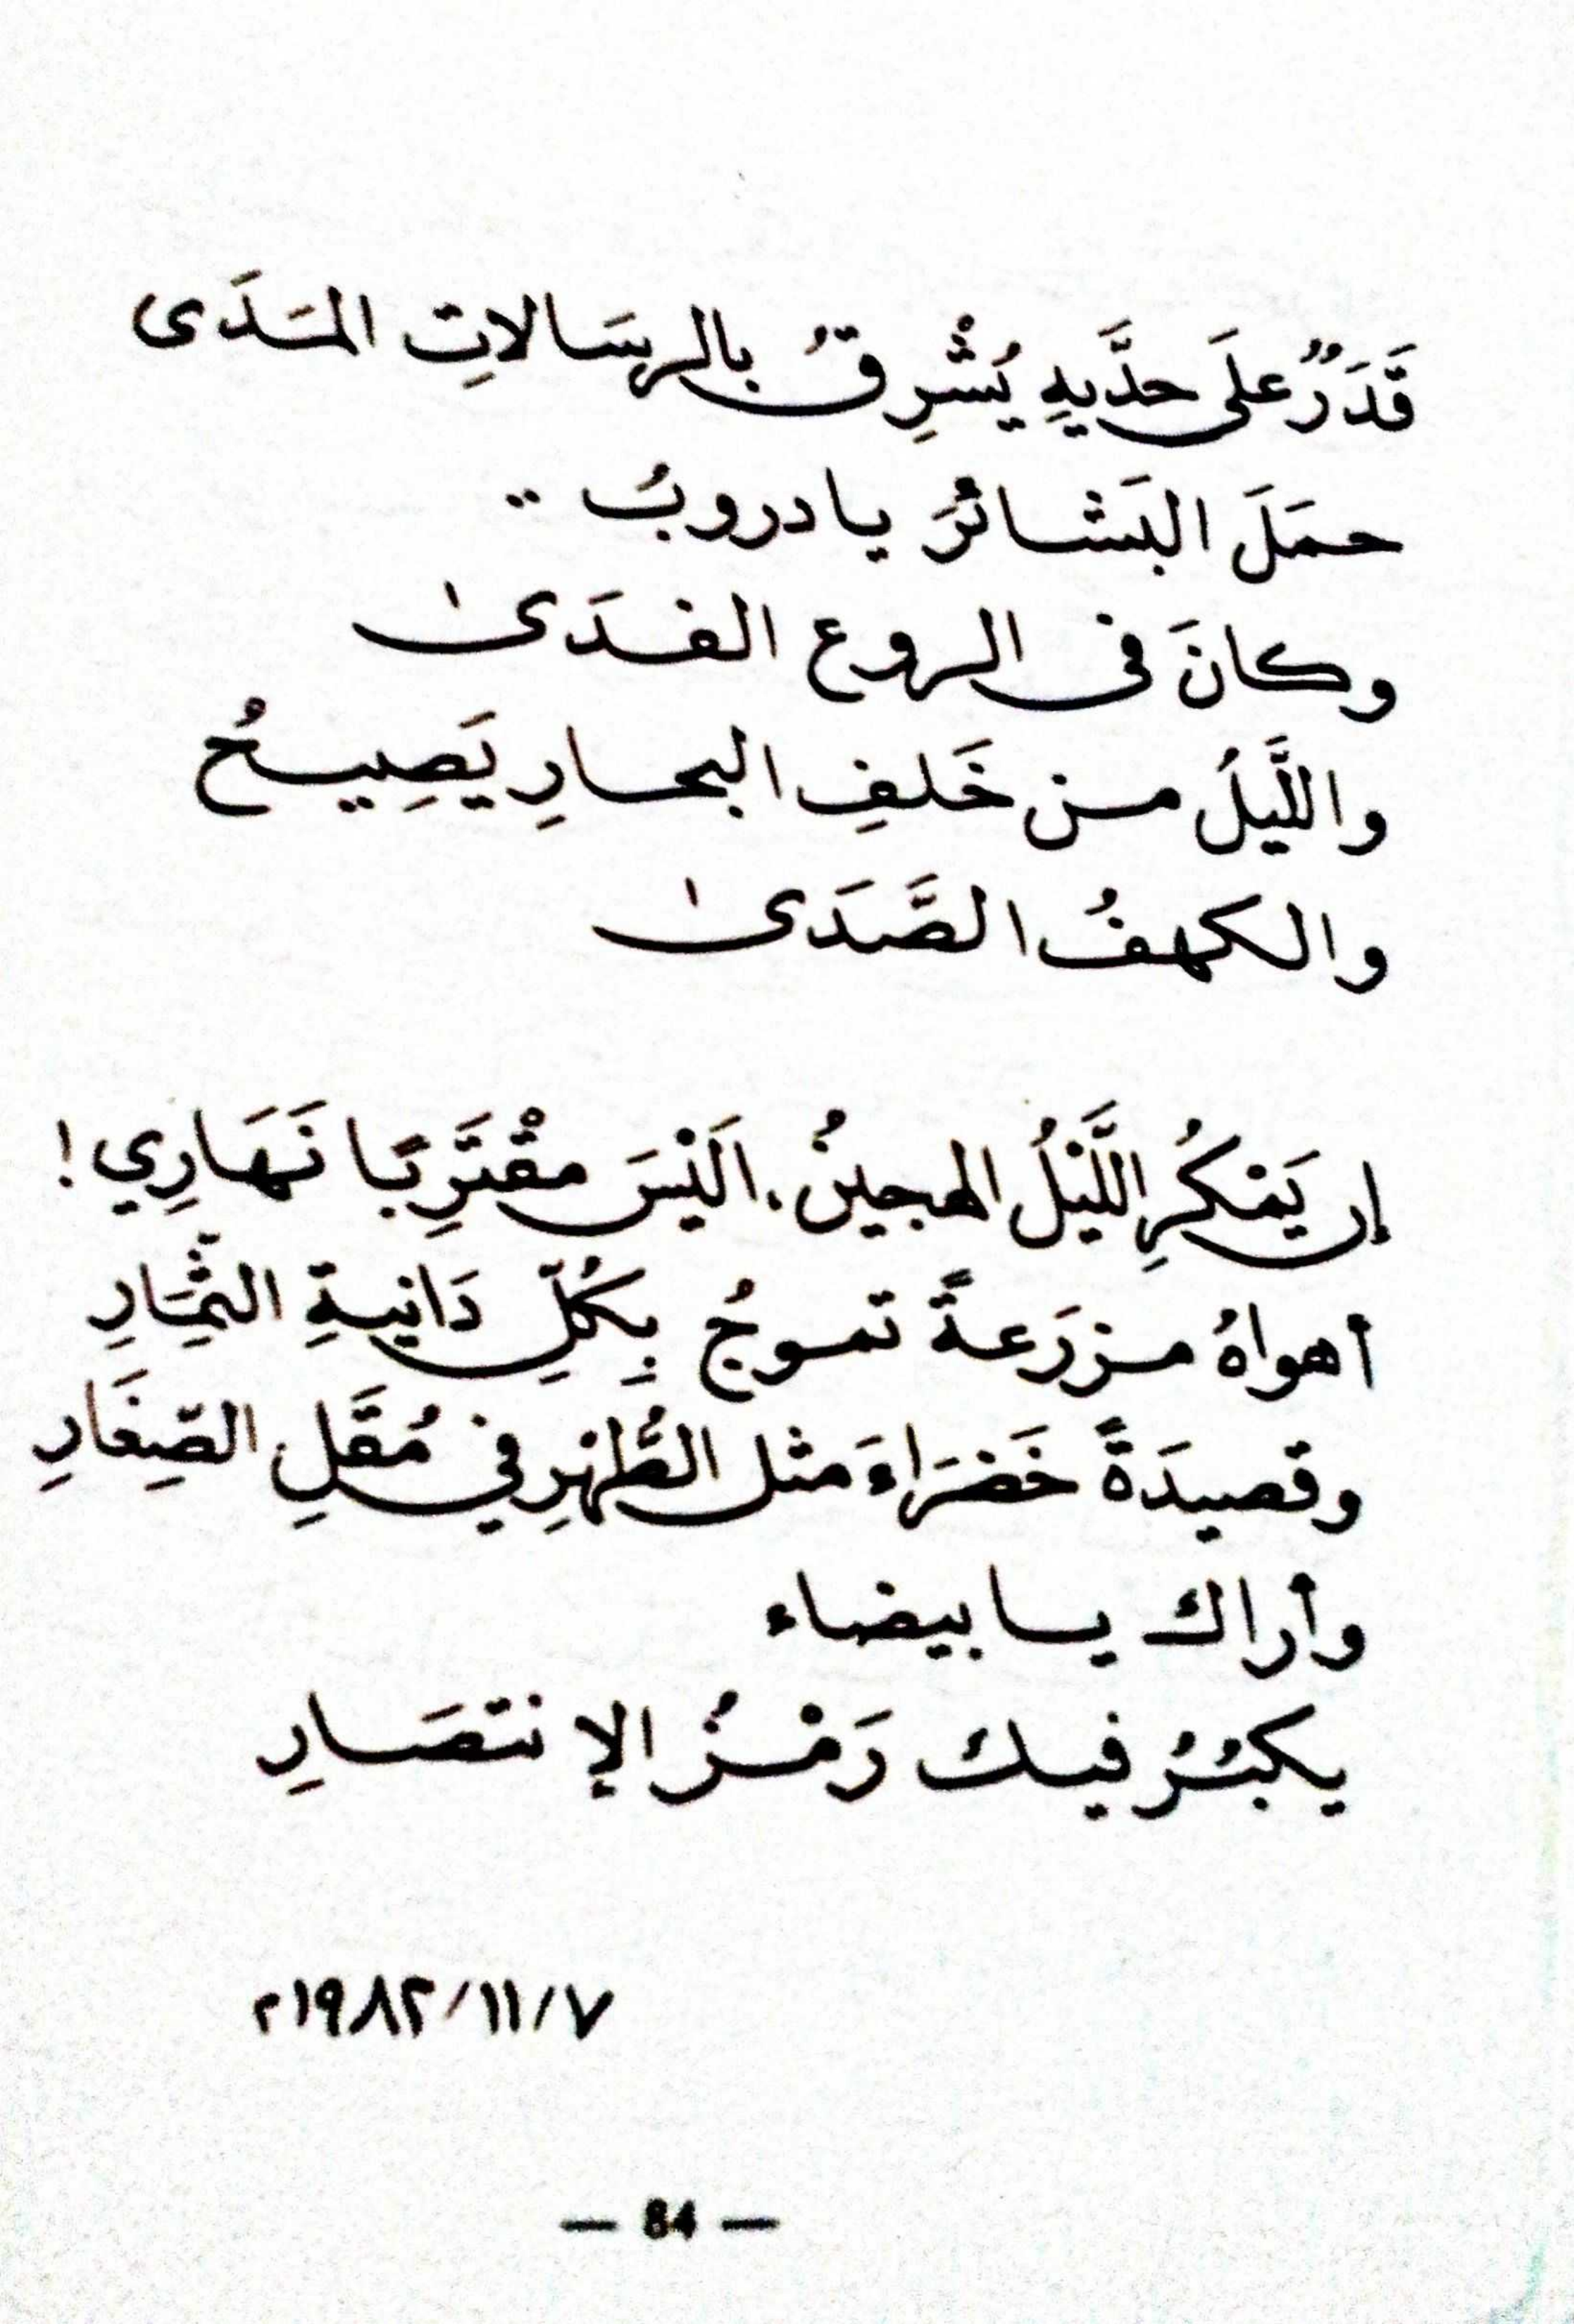 قَدَرٌ عَلَى حدَّيهِ يُشْرِقُ بالرسَالاتِ المَدَى
حمَلَ البَشائرَ يا دروبُ ..
وكانَ فى الروع الفدَىٰ
واللَّيلُ من خَلفِ البحارِ يَصِيحُ
والكهفُ الصَّدَىٰ
إن يَمْكُرِ اللَّيْلُ الهجينُ . اَلَيْسَ مقْتَرِبًا نَهَارِي !
أهواهُ مزرَعةً تموجُ بِكُلِّ دَانِيةِ الثِّمَارِ
وقصيدَةً خَضرَاءَ مثل الطُّهْرِ في مُقَلِ الصِّغَارِ
وأراك يا بيضاء
يكبُرُ فيك رَمْزُ الإنتصَارِ
٧/١١/١٩٨٢م
— 84 —